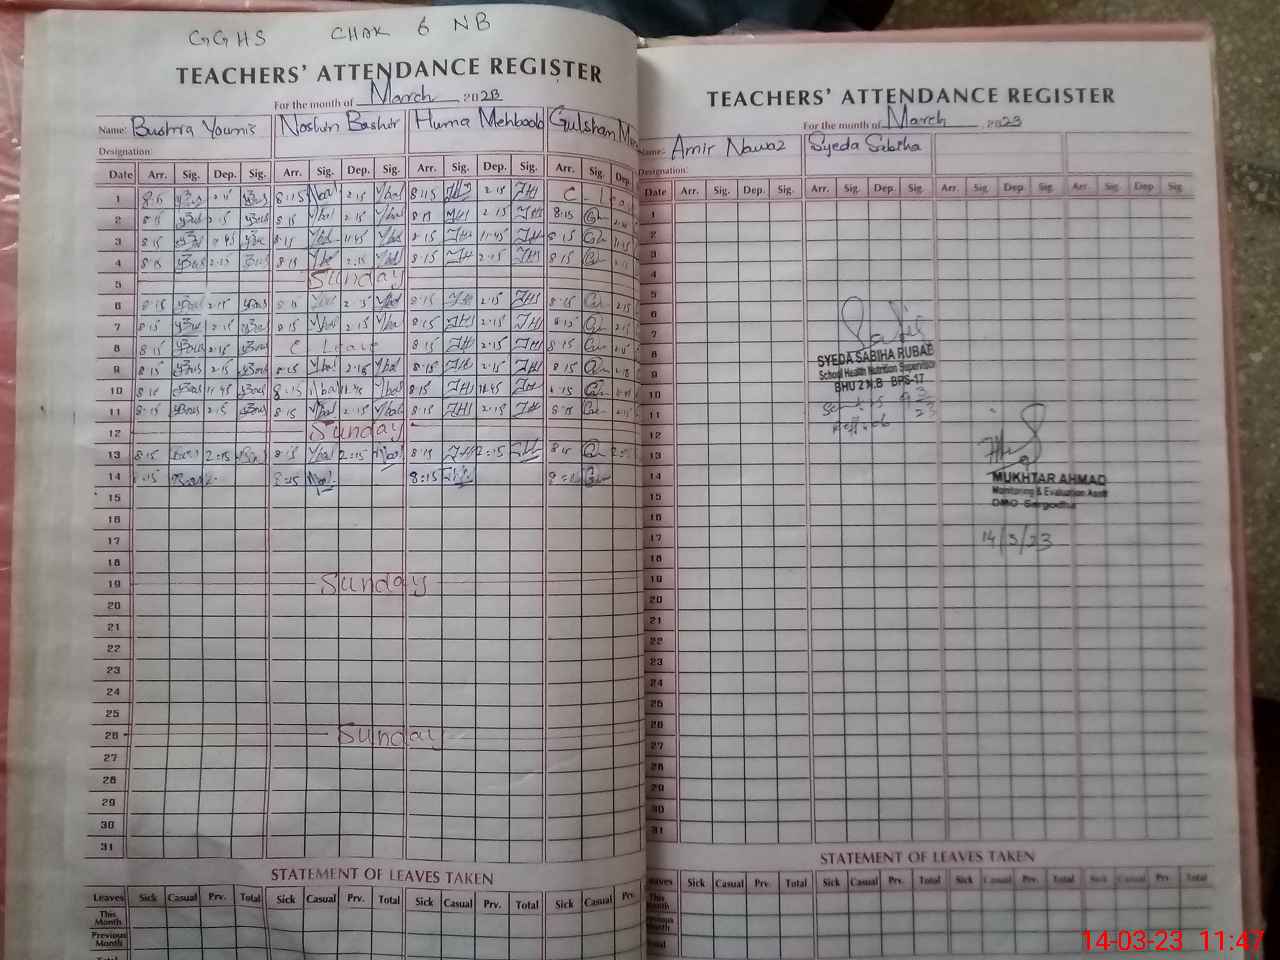 GGHS CHAK 6 NB
TEACHERS' ATTENDANCE REGISTER
For the month of March 2023
Name: Bushra Younis Noshin Bashir Huma Mehboob Gulshan
Designation:
Date Arr. Sig. Dep. Sig. Arr. Sig. Dep. Sig. Arr. Sig. Dep. Sig. Arr. Sig. Dep.
1 8:15 2:15 8:15 2:15 8:15 2:15 C - Lea
2 8:15 2:15 8:15 2:15 8:15 2:15 8:15
3 8:15 11:45 8:15 11:45 8:15 11:45 8:15
4 8:15 2:15 8:15 2:15 8:15 2:15 8:15
5 Sunday
6 8:15 2:15 8:15 2:15 8:15 2:15 8:15 2:15
7 8:15 2:15 8:15 2:15 8:15 2:15 8:15 2:15
8 8:15 2:15 C Leave 8:15 2:15 8:15 2:15
9 8:15 2:15 8:15 2:15 8:15 2:15 8:15 2:15
10 8:15 11:45 8:15 11:45 8:15 11:45 8:15
11 8:15 2:15 8:15 2:15 8:15 2:15 8:15 2:15
12 Sunday
13 8:15 2:15 8:15 2:15 8:15 2:15 8:15
14 8:15 8:15 8:15
15
16
17
18
19 Sunday
20
21
22
23
24
25
26 Sunday
27
28
29
30
31
STATEMENT OF LEAVES TAKEN
Leaves Sick Casual Prv. Total Sick Casual Prv. Total Sick Casual Prv. Total Sick Casual Prv.
This Month
Previous Month
Total
TEACHERS' ATTENDANCE REGISTER
For the month of March 2023
Name: Amir Nawaz Syeda Sabiha
Designation:
Date Arr. Sig. Dep. Sig. Arr. Sig. Dep. Sig. Arr. Sig. Dep. Sig. Arr. Sig. Dep. Sig.
1
2
3
4
5
6
7
8
9
10
11
12
13
14
15
16
17
18
19
20
21
22
23
24
25
26
27
28
29
30
31
SYEDA SABIHA RUBAB
School Health Nutrition Supervisor
BHU 2 N.B BPS-17
MUKHTAR AHMAD
Monitoring & Evaluation Asstt
DMO Sargodha
14/3/23
STATEMENT OF LEAVES TAKEN
Leaves Sick Casual Prv. Total Sick Casual Prv. Total Sick Casual Prv. Total Sick Casual Prv. Total
This Month
Previous Month
Total
14-03-23 11:47